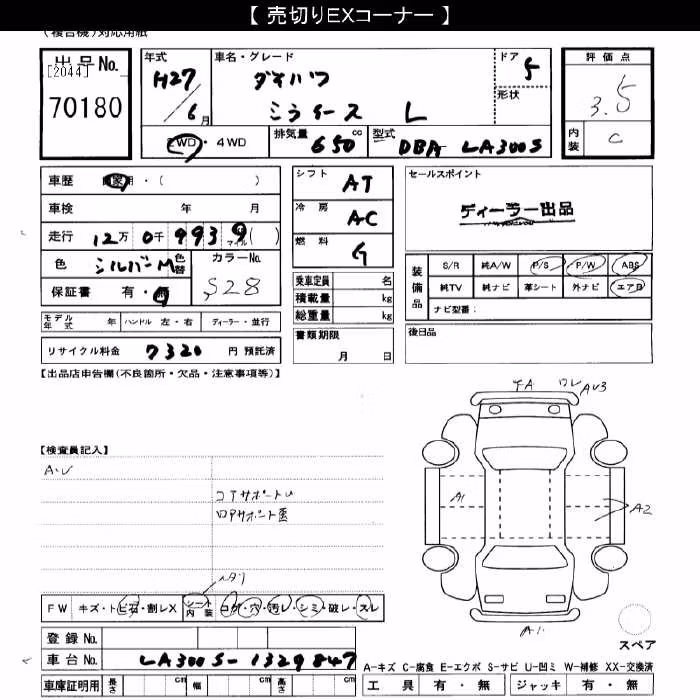 【 売切りEXコーナー 】
(複合機)対応用紙
出品No.
[2044]
70180
年式
H27/6月
車名・グレード
ダイハツ
ミライース L
ドア
5
形状
評価点
3.5
内装
C
2WD・4WD
排気量 650 cc
型式 DBA LA300S
車歴 自家用・( )
車検 年 月
走行 12万 0千 939 マイル( )
色 シルバーM 色替
カラーNo.
S28
保証書 有・無
シフト AT
冷房 AC
燃料 G
乗車定員 名
積載量 kg
総重量 kg
書類期限
月 日
セールスポイント
ディーラー出品
装備品
S/R 純A/W P/S P/W ABS
純TV 純ナビ 革シート 外ナビ エアB
ナビ型番:
後日品
モデル年式 年 ハンドル 左・右 ディーラー・並行
リサイクル料金 7320 円 預託済
【出品店申告欄(不良箇所・欠品・注意事項等)】
【検査員記入】
A・U
コアサポートU
ロアサポート
FW キズ・トビ石・割レX
シート内装 コゲ・穴・汚レ・シミ・破レ・スレ
登録No.
車台No. LA300S-1329847
車庫証明用 長さ cm 幅 cm 高さ cm
A1
A2
A1
スペア
A-キズ C-腐食 E-エクボ S-サビ U-凹ミ W-補修 XX-交換済
工具 有・無 ジャッキ 有・無